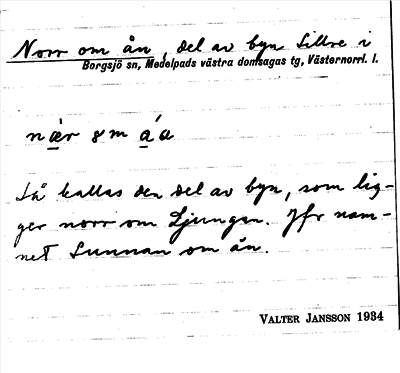 Norr om ån, del av byn Sillre i
Borgsjö sn, Medelpads västra domsagas tg, Västernorrl. l.
nær 8m áa
Så kallas den del av byn, som lig-
ger norr om Ljungan. Jfr nam-
net Sunnan om ån.
VALTER JANSSON 1934